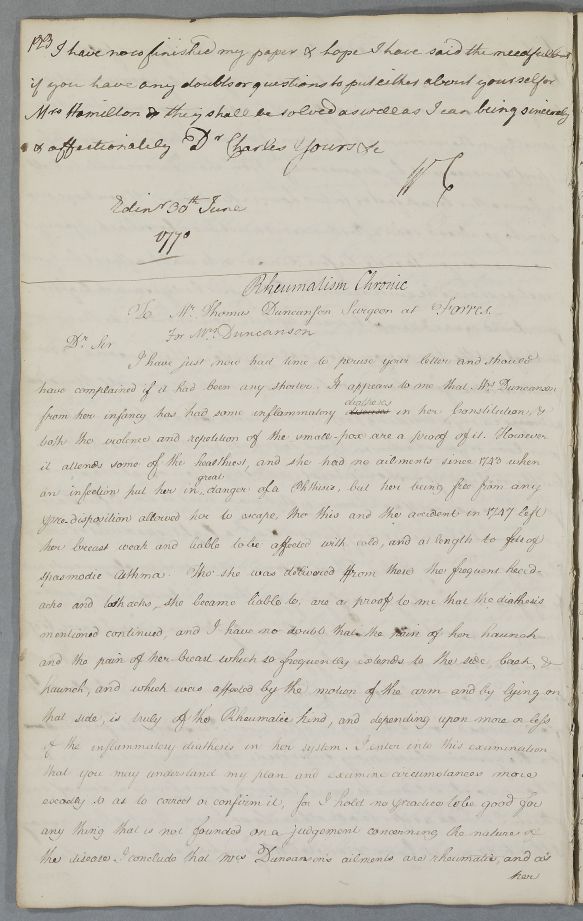 123 I have now finished my paper & hope I have said the needful but
if you have any doubts or questions to put either about yourself or
Mrs Hamilton they shall be solved as well as I can being sincerely
& affectionately Dr Charles Yours &c
WC
Edinr 30th June
1770
Rheumatism Chronic
To Mr. Thomas Duncanson Surgeon at Forres.
For Mrs Duncanson
Dr Sir
I have just now had time to peruse your letter and should
have complained if it had been any shorter. It appears to me that Mrs Duncanson
diathesis
from her infancy has had some inflammatory in her Constitution, &
both the violence and repetition of the small-pox are a proof of it. However
it attends some of the healthiest, and she had no ailments since 1743 when
great
an infection put her in danger of a Phthisis, but her being free from any
pre-disposition allowed her to escape, tho this and the accident in 1747 left
her breast weak and liable to be affected with cold, and at length to fits of
spasmodic Asthma Tho' she was delivered from these the frequent head-
achs and tothachs, she became liable to, are a proof to me that the diathesis
mentioned continued, and I have no doubt that the pain of her haunch
and the pain of her breast which so frequently extends to the side, back, &
haunch, and which were affected by the motion of the arm and by lying on
that side, is truly of the Rheumatic kind, and depending upon more or less
of the inflammatory diathesis in her system. I enter into this examination
that you may understand my plan and examine circumstances more
exactly so as to correct or confirm it, for I hold no practice to be good for
any thing that is not founded on a judgement concerning the nature of
the disease. I conclude that Mrs Duncanson's ailments are rheumatic, and as
her